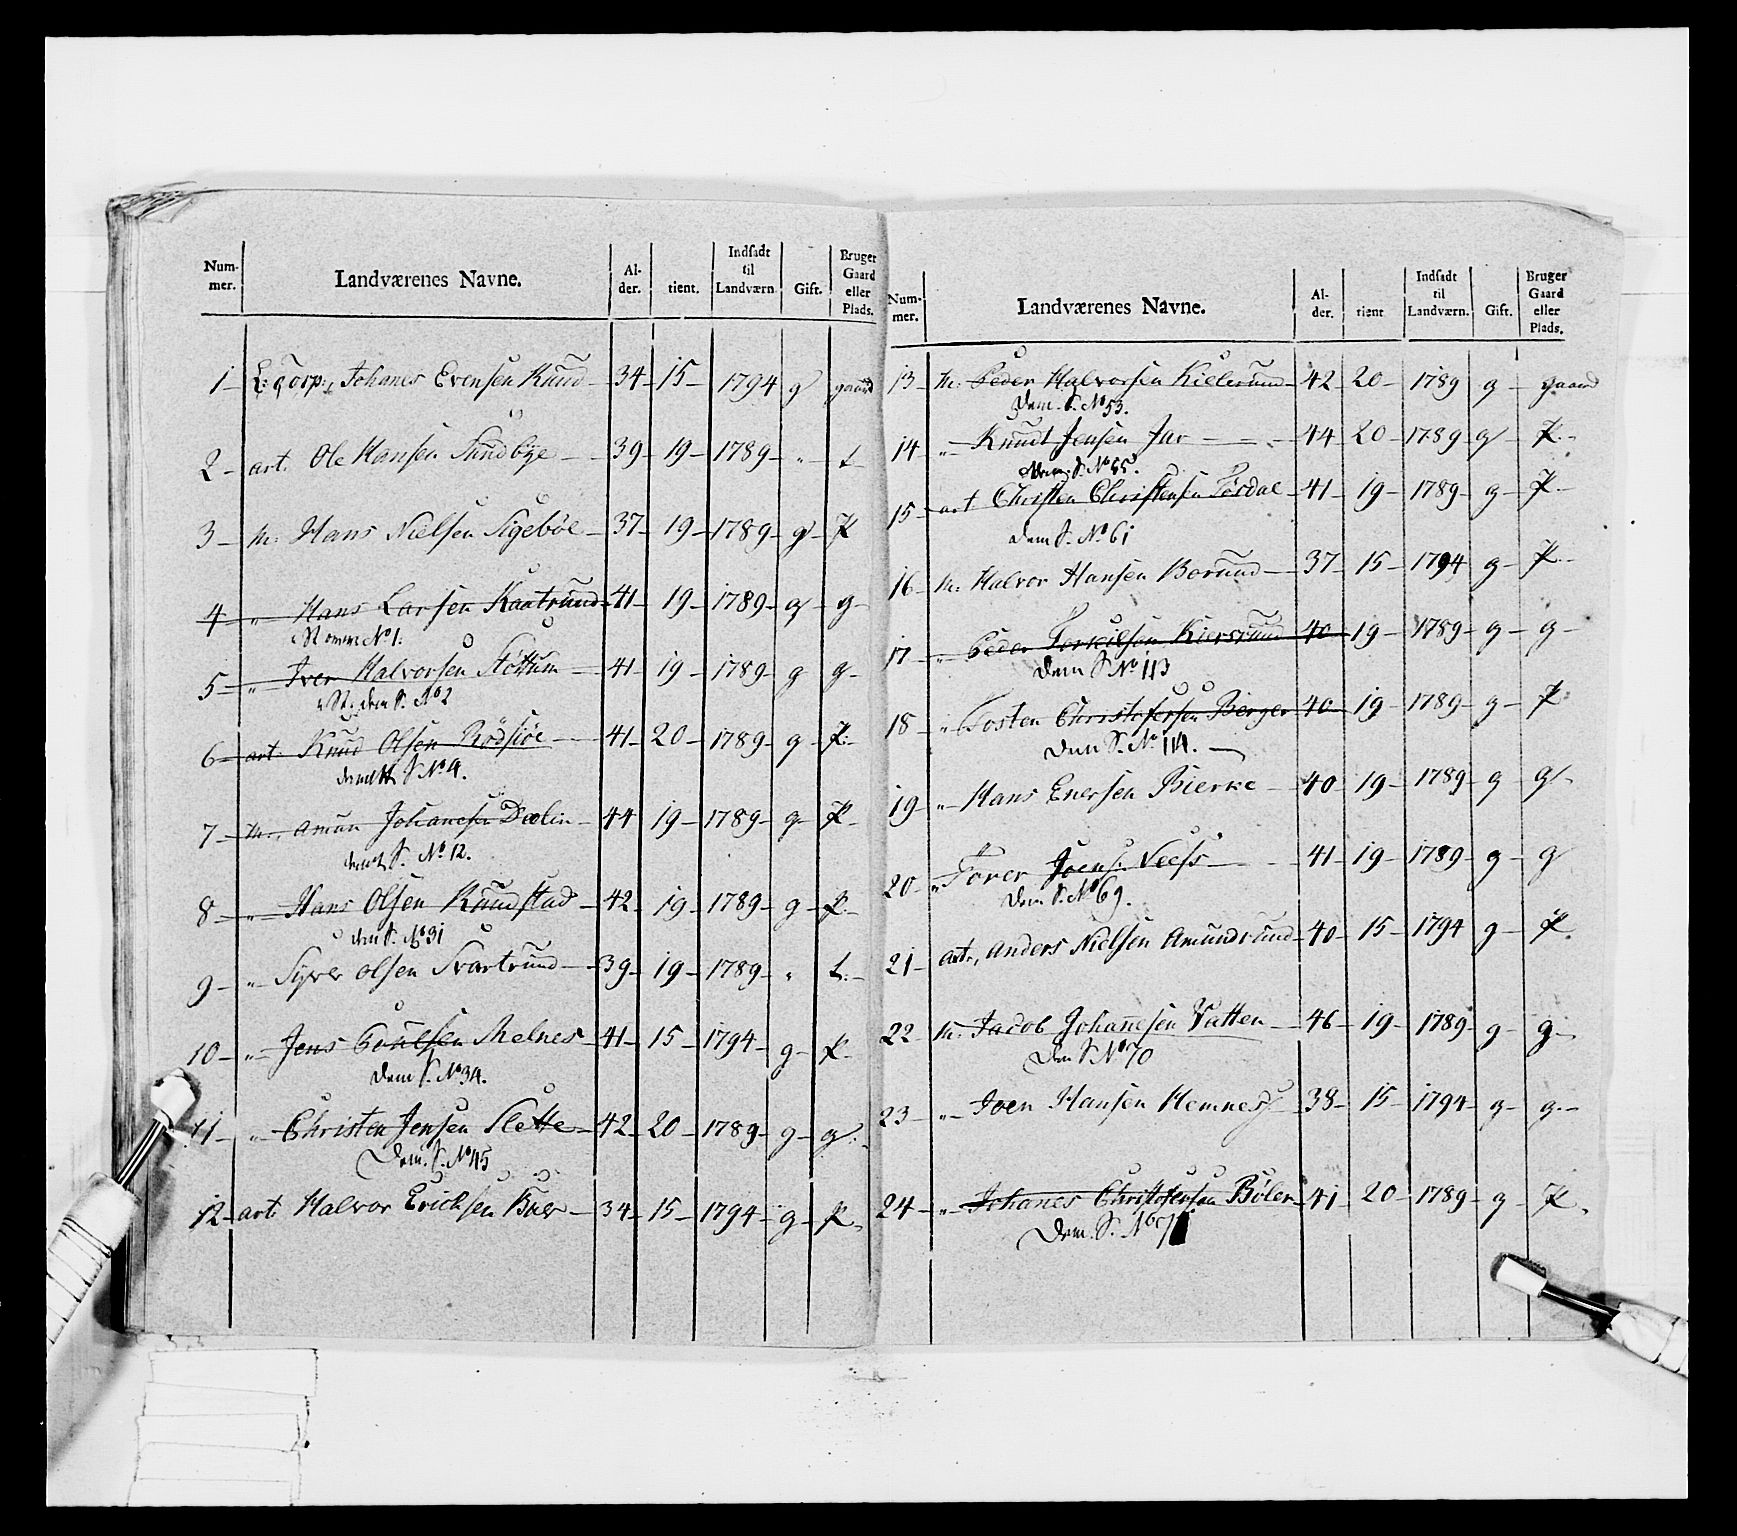 Num-
mer.
Landværenes Navne.
Al-
der.
tient.
Indsadt
til
Landværn.
Gift.
Bruger
Gaard
eller
Plads.
1 – L: Corp:, Johanes Evensen Ruud – 34 – 15 – 1794 g gaard
2 – art. Ole Hansen Sundbye – 39 – 19 – 1789 – „ – L
3 – M: Hans Nielsen Sigebøe – 37 – 19 – 1789 – g – P
4 – „ Hans Larsen Kaatrund – 41 – 19 – 1789 – g – g –
No 1.
5 – „ Iver Halvorsen Støttum – 41 – 19 – 1789 – g g –
dem S. No 2
6 – art. Knud Olsen Rødsiøe – 41 – 20 – 1789 – g – P. –
S No 4.
7 – M., Amun Johanesen Dælin – 44 19 – 1789 – g – P. –
S. No. 12.
8 – „ Hans Olsen Knudstad – 42 – 19 – 1789 – g – P. –
dem S. No 31
9 – „ Syver Olsen Svartrund – 39 – 19 – 1789 – „ L. –
10 – „ Jens Melnes – 41 – 15 – 1794 – g – P.
Dem S. No 34.
11 – „ Christen Jensen Slette – 42 – 20 – 1789 – g – g.
Dem. S. No 45
12 – art. Halvor Erichsen – 34 – 15 – 1794 – g – P.
Num-
mer.
Landværenes Navne.
Al-
der.
tient
Indsadt
til
Landværn.
Gift.
Bruger
Gaard
eller
Plads.
13 – M: Peder Halvorsen Kielsrund – 42 20 – 1789 g – gaard
Dem. S. No 53.
14 – „ Knudt Jensen Jar – 44 20 – 1789 – g – P. –
Dem. S. No 55.
15 – art Christen Christensen – 41 – 19 – 1789 – g – P. –
Dem S. No 61
16 – M. Halvor Hansen Borund – 37 – 15 – 1794 g – P. –
17 – „ Peder Torkilsen Kiersrund – 40 – 19 – 1789 – g – g –
Dem S No 113
18 – „ Tosten Christofersen Berger – 40 – 19 – 1789 – g – P
Dem S. No 114. –
19 – „ Hans Enersen Bierke – 40 19 – 1789 – g – g –
20 – „ Torer Joens: – 41 – 19 – 1789 – g – g
Dem S. No 69.
21 – art., Anders Nielsen Amundrund – 40 – 15 – 1794 g – P.
22 – M. Jacob Johannesen Vatten – 46 – 19 – 1789 – g – g –
Dem S No 70
23 – „ Joen Hansen Hemnes – 38 – 15 – 1794 – g – g. –
24 – „ Johanes Christofersen Bøler – 41 20 – 1789 – g – P.
Dem. S. No